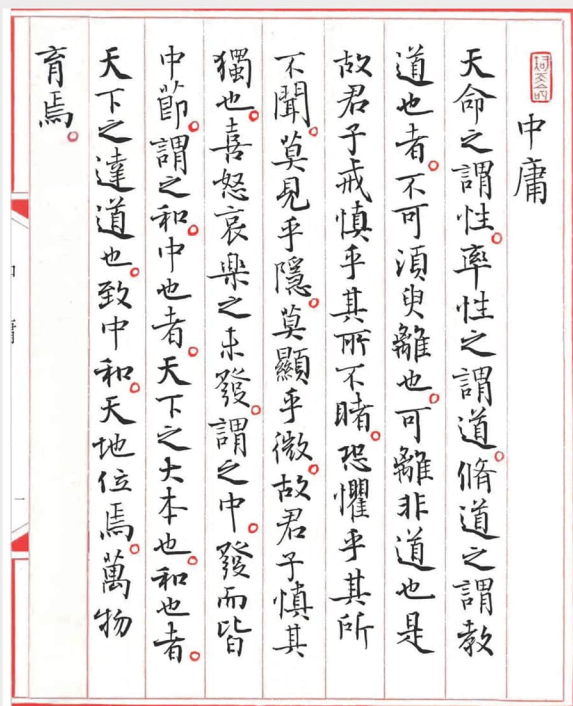 中庸
天命之謂性。率性之謂道。脩道之謂教
道也者。不可須臾離也。可離非道也是
故君子戒慎乎其所不睹。恐懼乎其所
不聞。莫見乎隱。莫顯乎微。故君子慎其
獨也。喜怒哀樂之未發。謂之中。發而皆
中節。謂之和。中也者。天下之大本也。和也者。
天下之達道也。致中和。天地位焉。萬物
育焉。